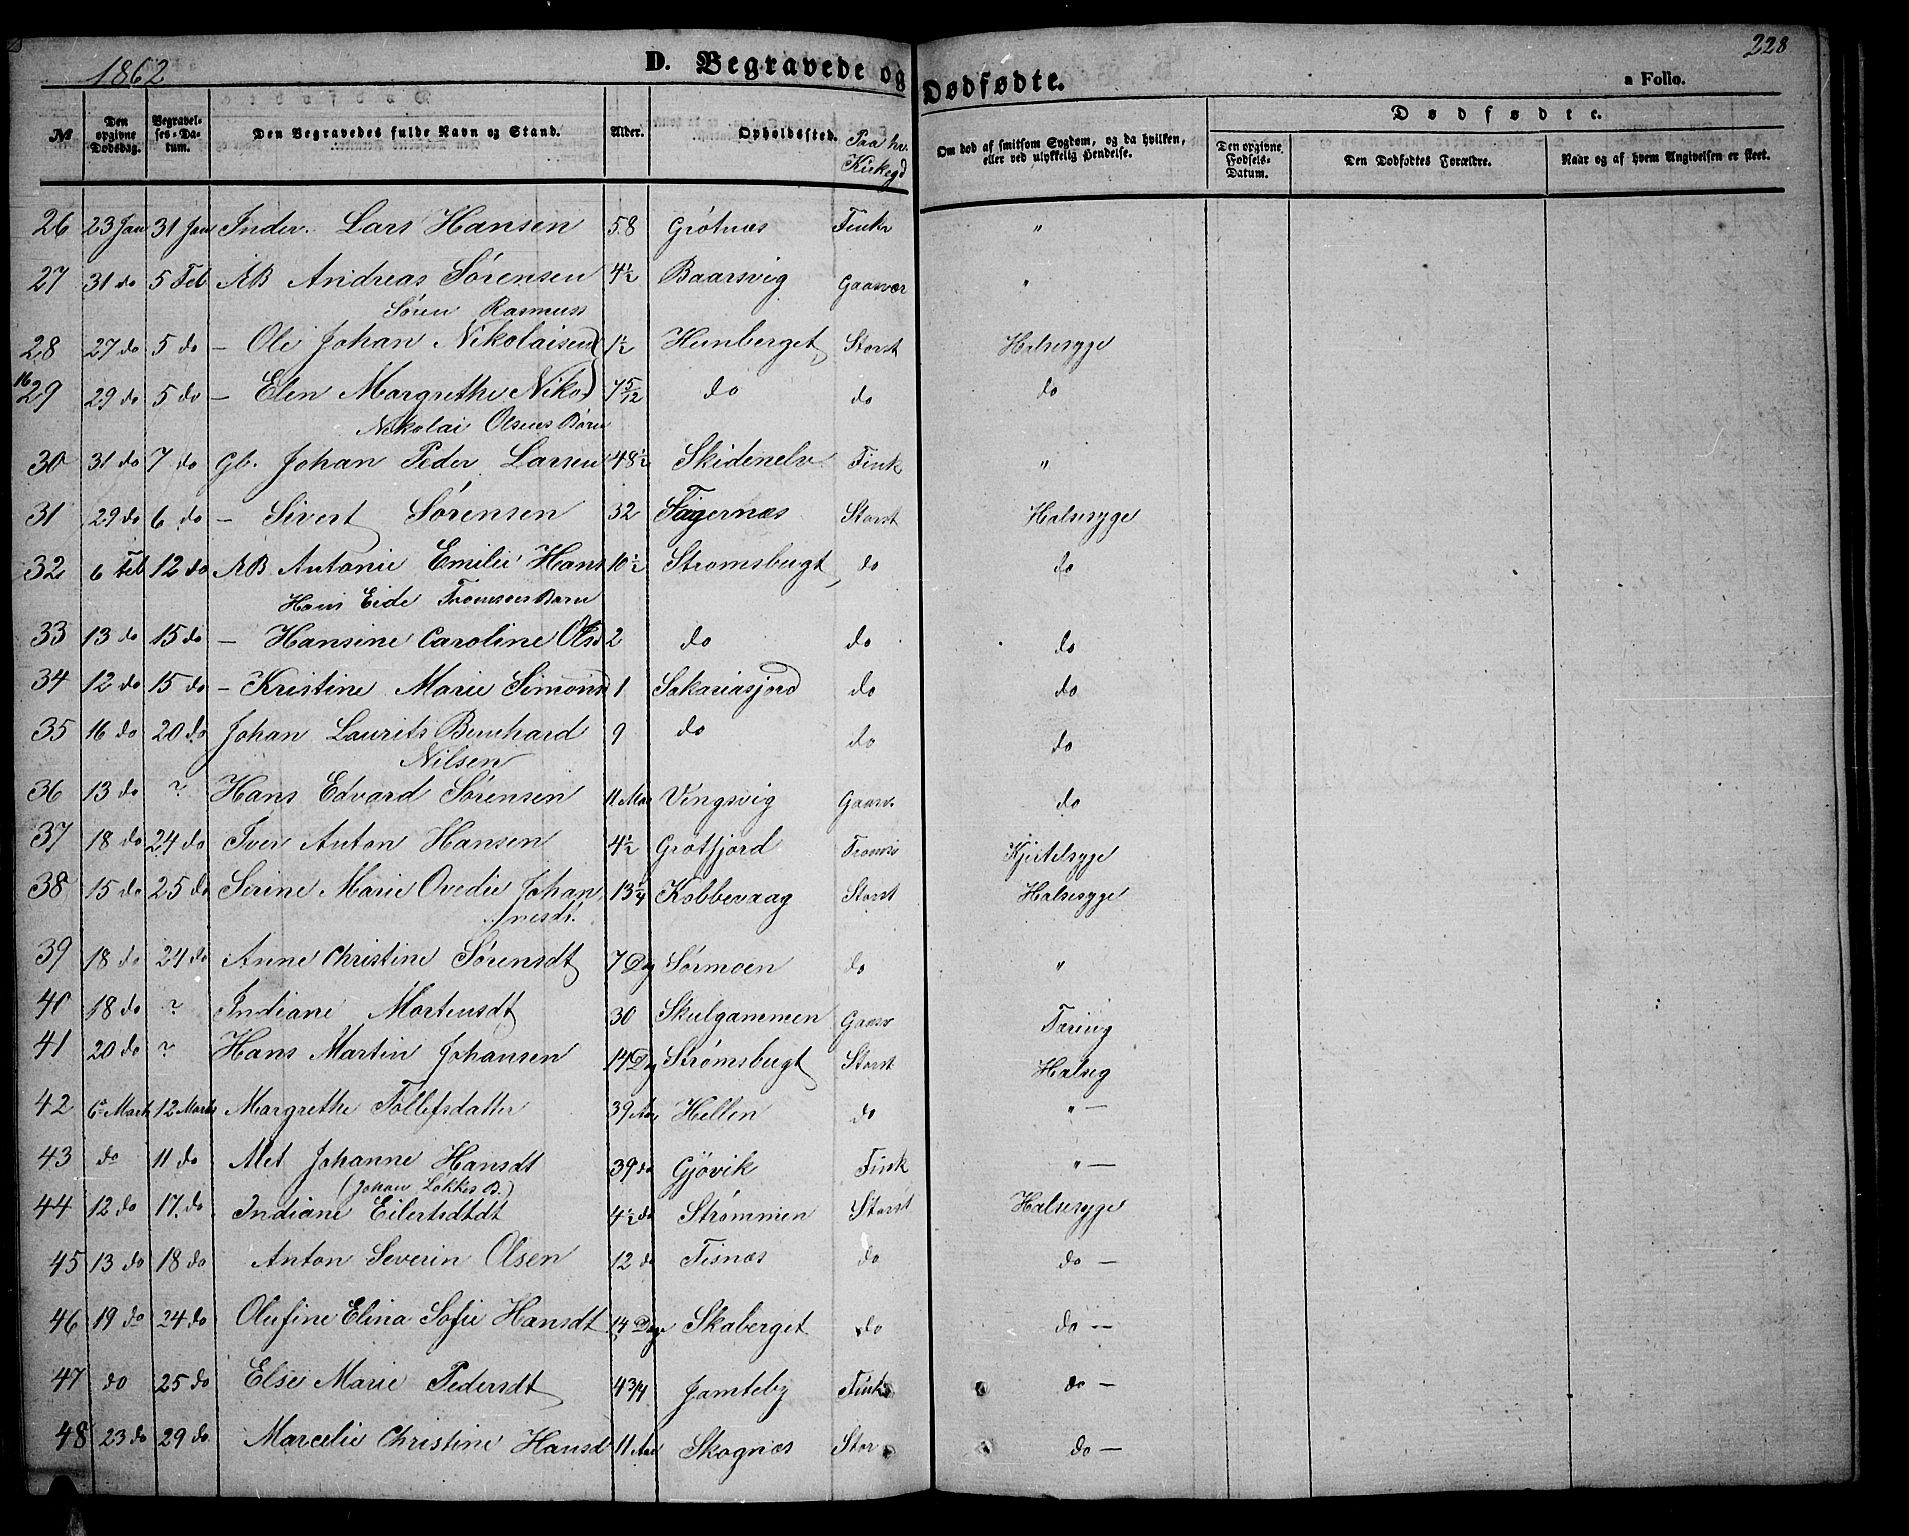 1862
D. Begravede og Dødfødte.
228
a Folio.
№ Den opgivne Dødsdag. Begravelses-Datum. Den Begravedes fulde Navn og Stand. Alder. Opholdssted. Paa hv. Kirkegd Om død af smitsom Sygdom, og da hvilken, eller ved ulykkelig Hendelse. Den opgivne Fødsels-Datum. Den Dødfødtes Forældre. Naar og af hvem Angivelsen er skeet.
Dødfødte.
26 23 Jan 31 Jan Inder. Lars Hansen 58 Grötnæs Finkr "
27 31 do 5 Feb ÆB Andreas Sørensen 4½ Baarsvig Gaasvær "
Sören Rasmuss
28 27 do 5 do – Ole Johan Nikolaisen 1½ Hunberget Storst Halsesyge
16
29 29 do 5 do – Elen Margrethe Nikod 7 5/12 do do do
Nikolai Olsens Børn
30 31 do 7 do Gb. Johan Peder Larsen 48½ Skidenelv Fink "
31 29 do 6 do – Sivert Sørensen 32 Fagernæs Storst Halsesyge
32 6 Feb 12 do ÆB Antonie Emilie Hans 10½ Stromsbugt do do
Hans Eide Tromsøes Barn
33 13 do 15 do – Hansine Caroline Olsd 2 do do do
34 12 do 15 do – Kristine Marie Simonsd 1 Sakariasjord do do
35 16 do 20 do Johan Laurits Bernhard 9 do do do
Nilsen
36 13 do ? Hans Edvard Sørensen 11 Mdr Vingsvig Gaasv do
37 18 do 24 do Iver Anton Hansen 4½ Grotfjord Troms Kjertelsyge
38 15 do 25 do Serine Marie Ovedie Johan 13¼ Kobbevaag Storst Halsesyge
nesdt.
39 18 do 24 do Anne Christine Sørensdt 7 Dag Sörmoen do "
40 18 do ? Indiane Mortensdt 30 Skulgammen Gaasv Tæring
41 20 do ? Hans Martin Johansen 14 Dg Strømsbugt Storst Halseg
42 6te Marts 12 Marts Margrethe Tollefsdatter 39 Aar Hellen do " –
43 do 11 do Alet Johanne Hansdt 39 do Gjövik Fink " –
(Johan Lökkes B.)
44 12 do 17 do Indiane Eilertsdtdt 4½ do Strømmen Storst Halsesyge
45 13 do 18 do Anton Severin Olsen 12 do Tisnæs do do –
46 19 do 24 do Olufine Elina Sofie Hansdt 14 Dage Skaberget do do –
47 do 25 do Else Marie Pedersdt 4 3/4 Jamteby Finkr do –
48 23 do 29 do Marcelie Christine Hansd 11 Aar Skognæs Stor do –